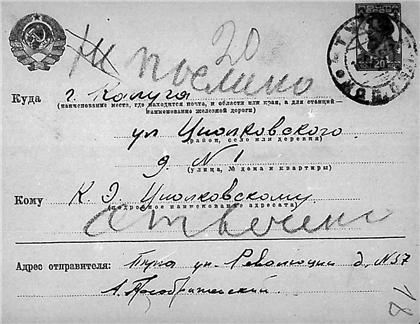 20
Куда г. Калуга
(наименование места, где находится почта, и области или края, а для станций—
наименование железной дороги)
ул Циолковского
(район, село или деревня)
д. № 1
(улица, № дома и квартиры)
Кому К. Э. Циолковскому
(подробное наименование адресата)
Отвечено
Адрес отправителя: ул. Революции д. № 37
А. Преображенский